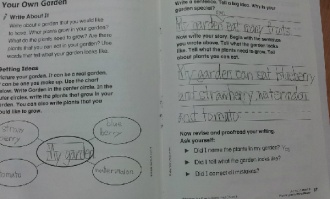 Your Own Garden
Write About It
Write about a garden that you would like
to have. What plants grow in your garden?
What do the plants need to grow? Are there
plants that you can eat in your garden? Use
words that tell what your garden looks like.
Getting Ideas
Picture your garden. It can be a real garden,
or can be one you make up. Use the chart
below. Write Garden in the center circle. In the
outer circles, write the plants that grow in your
garden. You can also write plants that you
would like to grow.
blue
berry
My garden
tomato
watermelon
Write a sentence. Tell a big idea. Why is your
garden special?
My garden eat many fruits
Now write your story. Begin with the sentence
you wrote above. Tell what the garden looks
like. Tell what the plants need to grow. Tell
about plants you can eat.
My garden can eat blueberry
and strawberry, watermelon
and tomato
Now revise and proofread your writing.
Ask yourself:
Did I name the plants in my garden? Yes
Did I tell what the garden looks like?
Did I correct all mistakes?